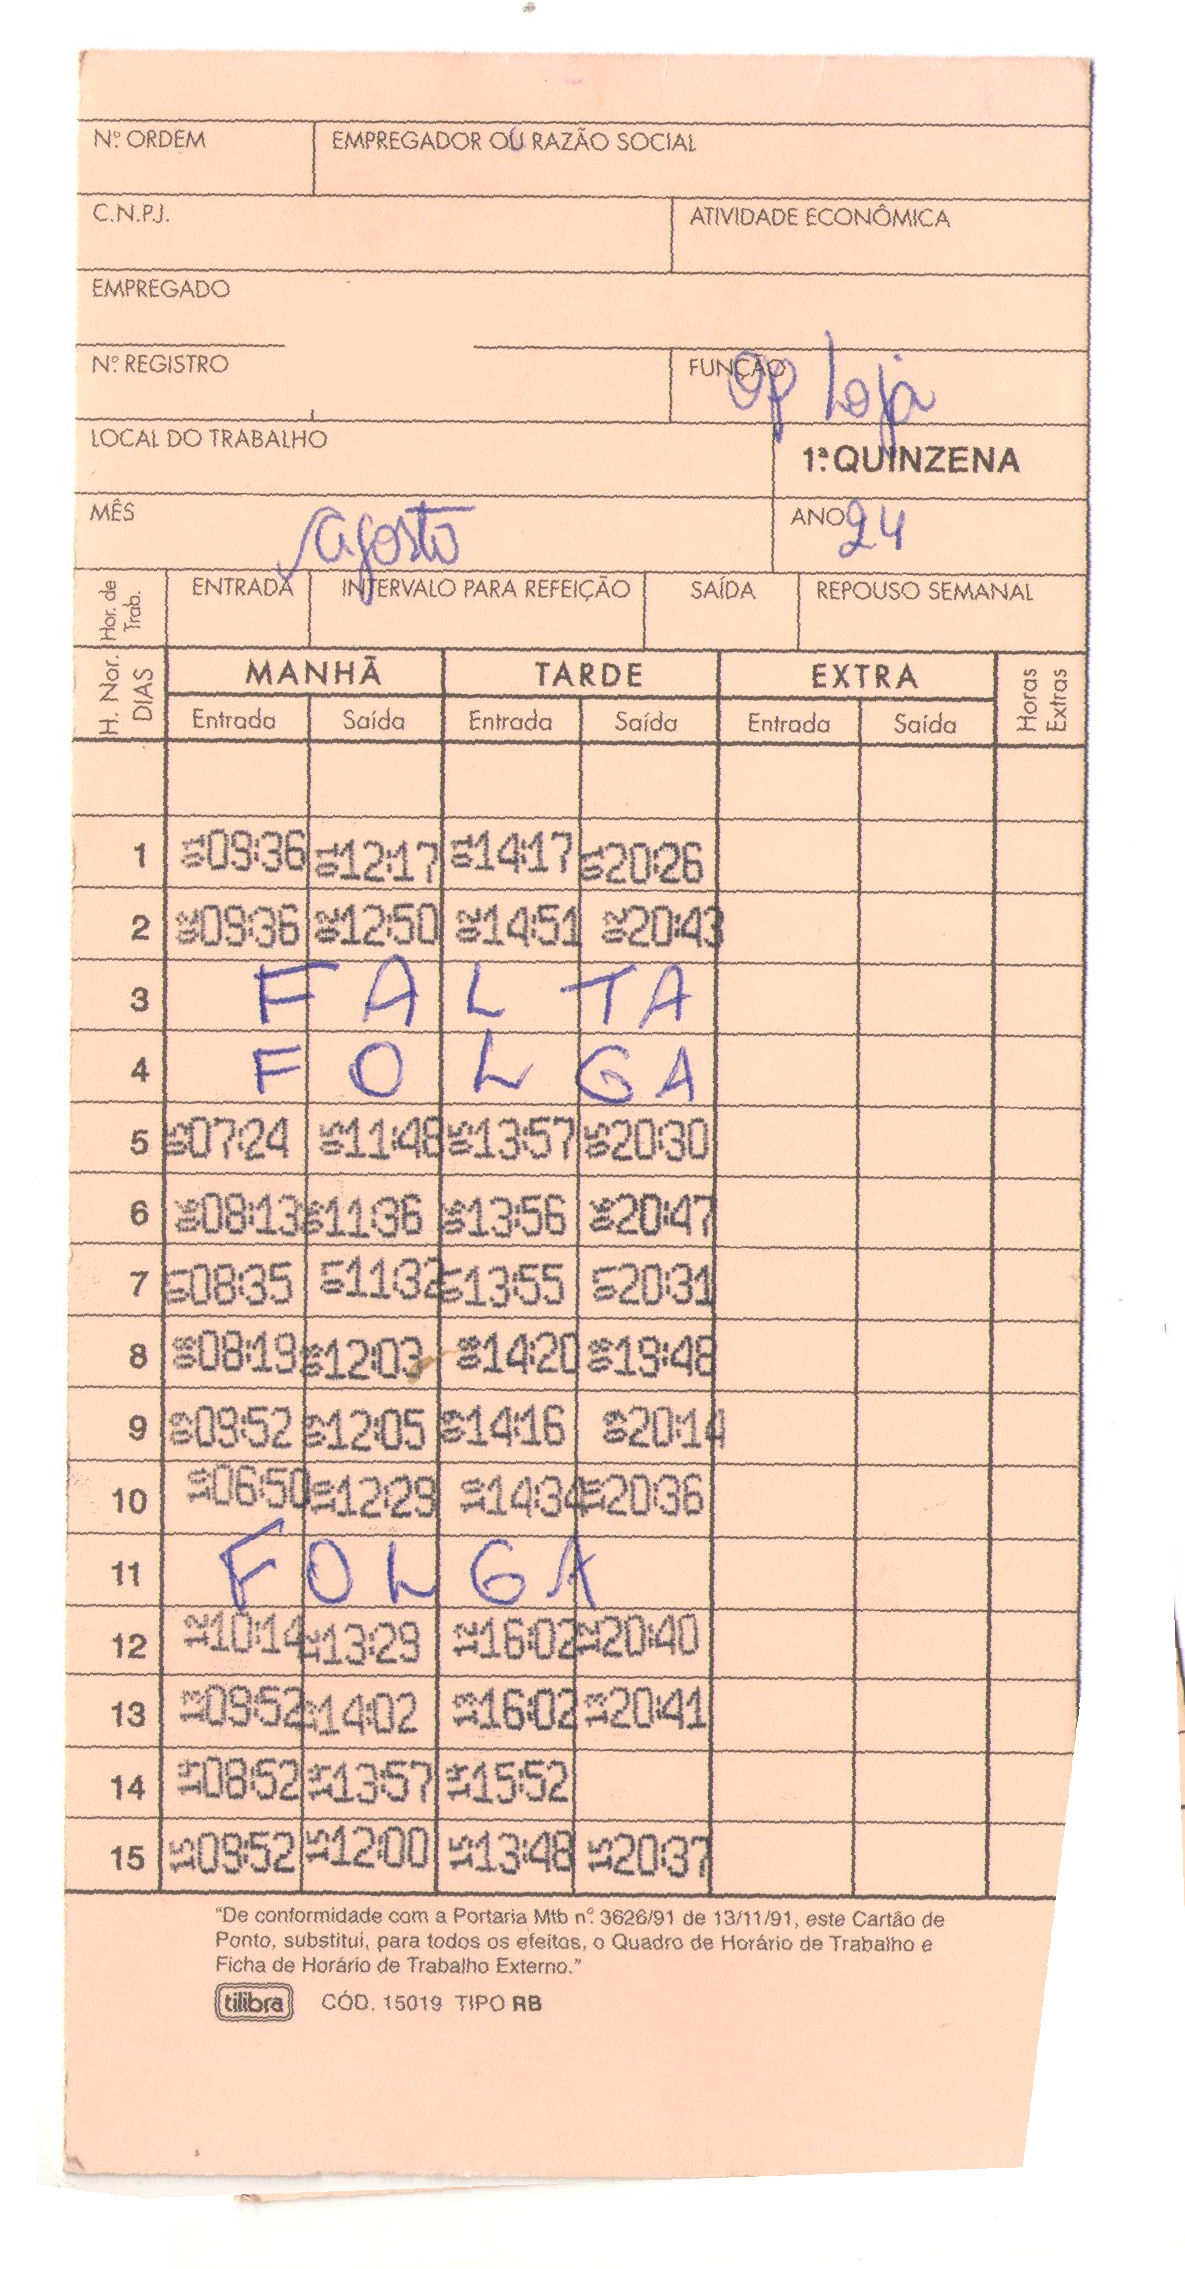 Nº ORDEM EMPREGADOR OU RAZÃO SOCIAL
C.N.P.J. ATIVIDADE ECONÔMICA
EMPREGADO
Nº REGISTRO FUNÇÃO OP Loja
LOCAL DO TRABALHO 1ª QUINZENA
MÊS Agosto ANO 24
Hor. de Trab. ENTRADA INTERVALO PARA REFEIÇÃO SAÍDA REPOUSO SEMANAL
H. Nor. DIAS MANHÃ TARDE EXTRA Horas Extras
Entrada Saída Entrada Saída Entrada Saída
1 01 09:36 01 12:17 01 14:17 01 20:26
2 02 09:36 02 12:50 02 14:51 02 20:43
3 FALTA
4 FOLGA
5 05 07:24 05 11:48 05 13:57 05 20:30
6 06 08:13 06 11:36 06 13:56 06 20:47
7 07 08:35 07 11:32 07 13:55 07 20:31
8 08 08:19 08 12:03 08 14:20 08 19:48
9 09 09:52 09 12:05 09 14:16 09 20:14
10 10 06:50 10 12:29 10 14:34 10 20:36
11 FOLGA
12 12 10:14 12 13:29 12 16:02 12 20:40
13 13 09:52 13 14:02 13 16:02 13 20:41
14 14 08:52 14 13:57 14 15:52
15 15 09:52 15 12:00 15 13:48 15 20:37
"De conformidade com a Portaria Mtb nº 3626/91 de 13/11/91, este Cartão de
Ponto, substitui, para todos os efeitos, o Quadro de Horário de Trabalho e
Ficha de Horário de Trabalho Externo."
tilibra CÓD. 15019 TIPO RB